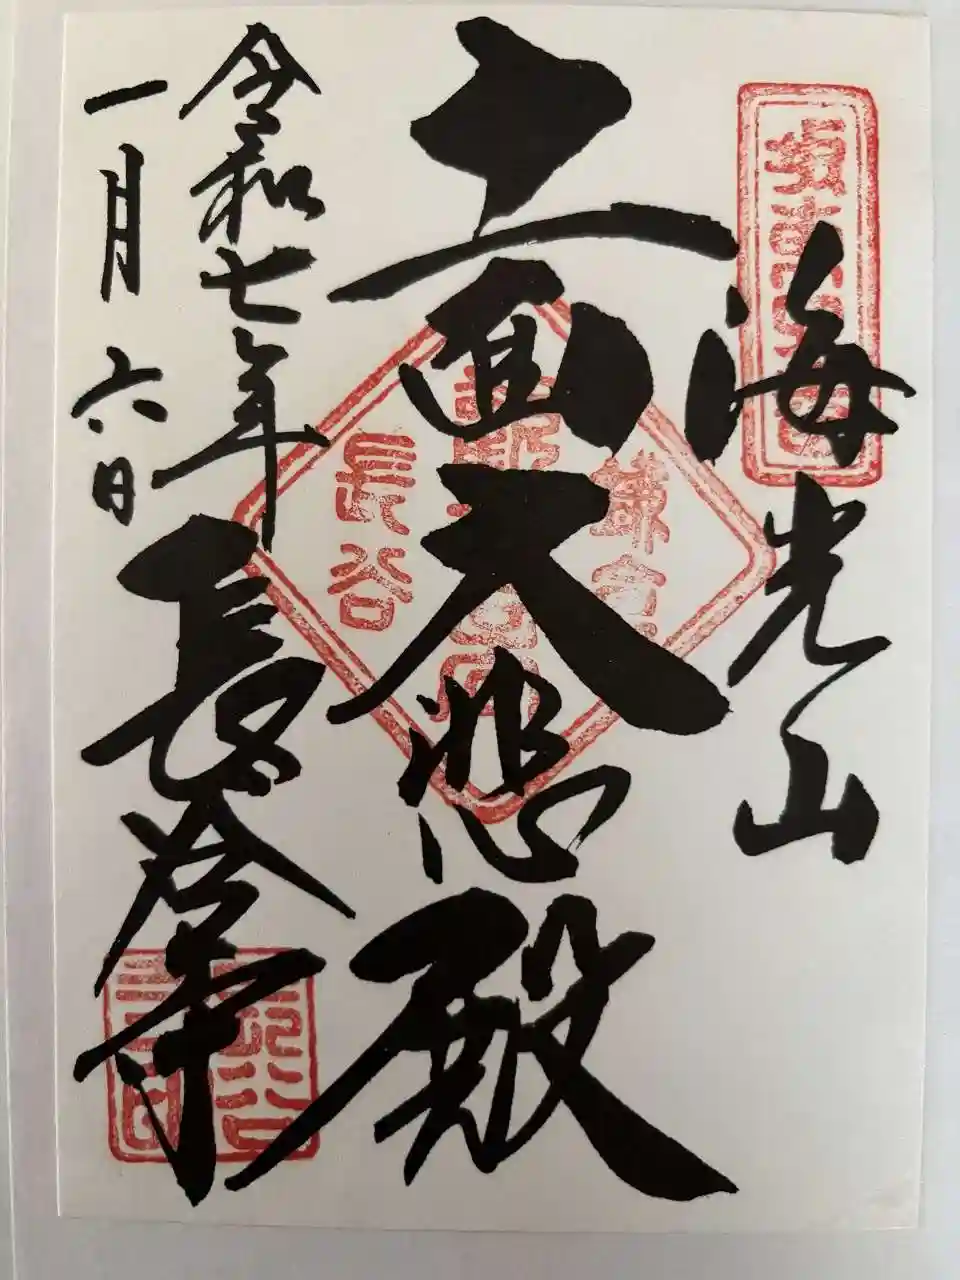 海光山
十一面大悲殿
長谷寺
令和七年
一月六日
長谷